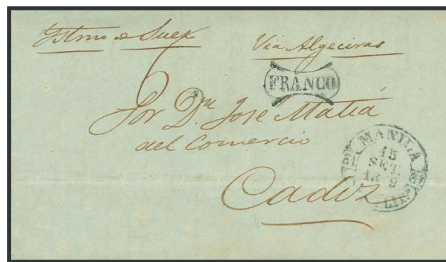 Istmo de Suez
Via Algeciras
FRANCO
Por Dn Jose Matia
del Comercio
MANILA
15
SET.
Cadiz